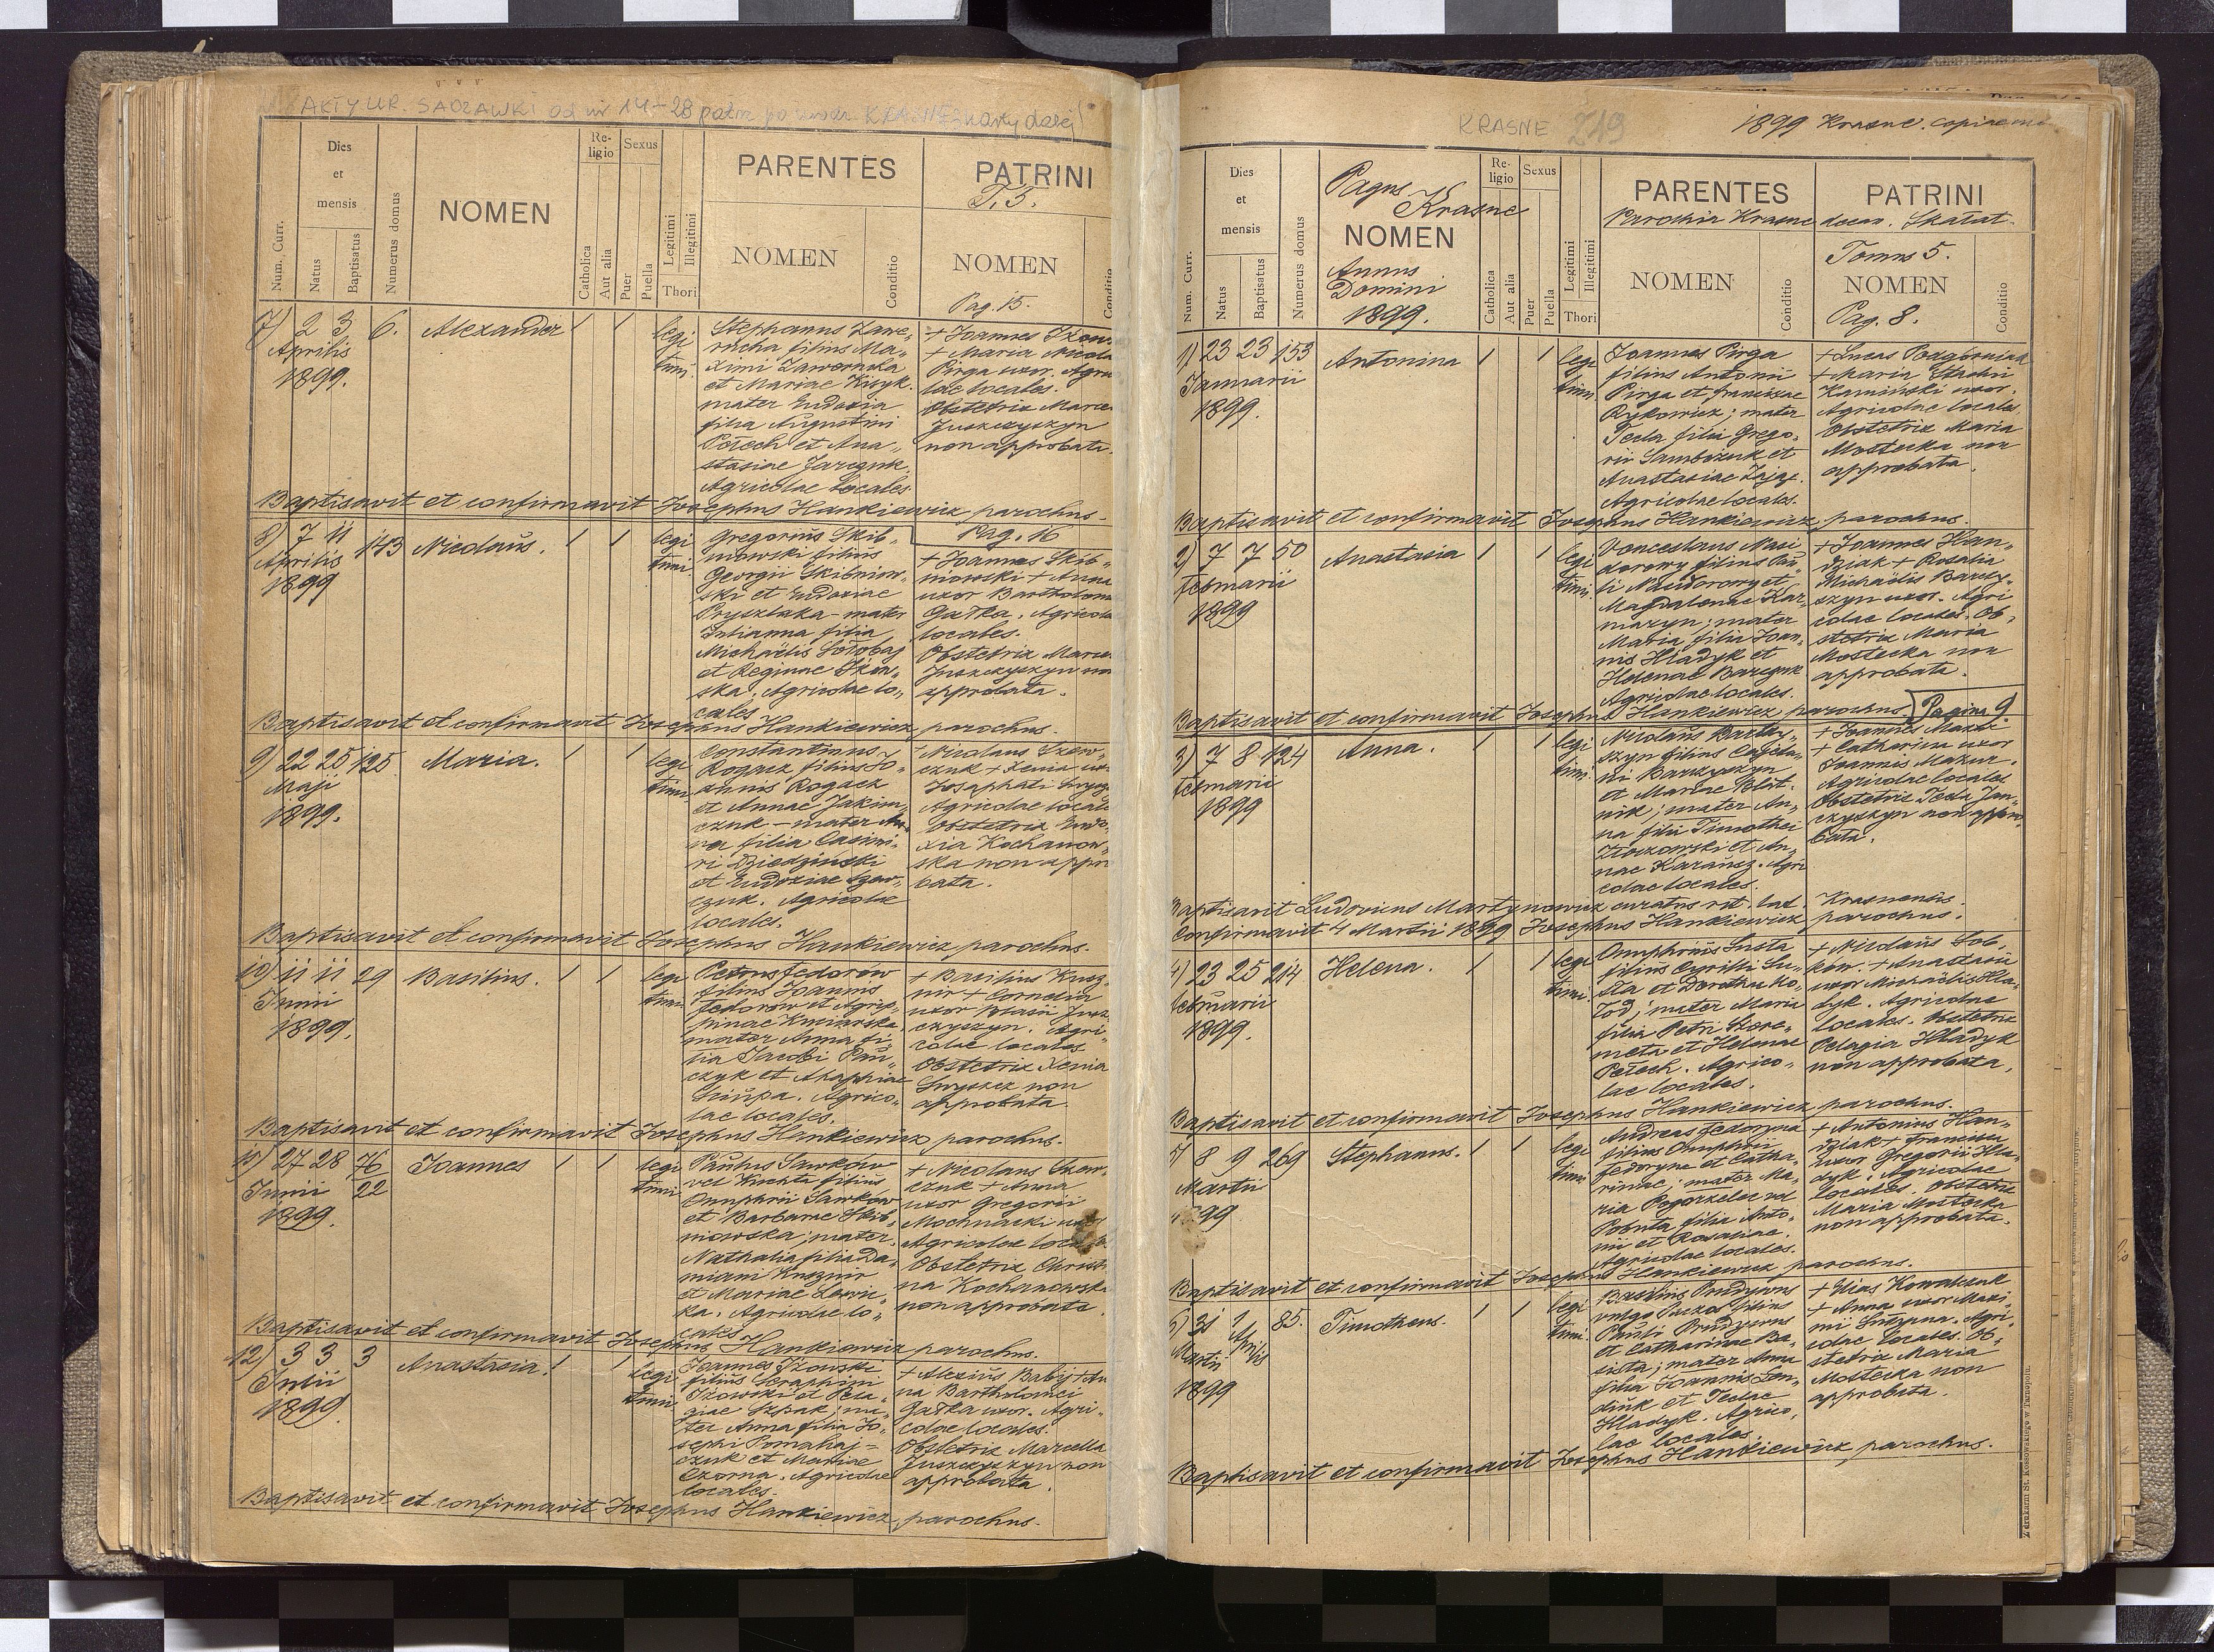 AKTY UR. SADZAWKI od nr 14-28 patrz po
Dies et mensis
Num. Curr.
Natus
Baptisatus
Numerus domus
NOMEN
Religio
Catholica
Aut alia
Sexus
Puer
Puella
Legitimi
Illegitimi
Thori
PARENTES
NOMEN
Conditio
PATRINI
T. 5.
NOMEN
Pag. 15.
Conditio
7) 2 3 6. Alexander 1 1 legi
Aprilis
timi.
1899.
Stephanus Zawe„
rucha filius Ma„
ximi Zaworucha
et Mariae Kizyk.
mater Eudoxia
filia Augustini
Pełech et Ana„
stasiae Jarczuk.
Agricolae locales.
+ Joannes
+ Maria
Pirga uxor. Agri
lae locales.
Obstetrix Marce
Juszczyszyn
non approbata.
Baptisavit et confirmavit Josephus Hankiewicz parochus.
8) 7 11 143 Nicolaus. 1 1 legi
Aprilis
timi.
1899
Gregorius Skib„
niowski filius
Georgii Skibniow„
ski et Eudoxiae
Prysztaka - mater
Julianna filia
Michaëlis Sołobaj
et Reginae
ska. Agricolae lo„
cales
Pag. 16
+ Joannes Skib„
niowski + Anna
uxor Bartholom
Gałka. Agricola
locales.
Obstetrix Marce
Juszczyszyn non
approbata.
Baptisavit et confirmavit Josephus Hankiewicz parochus.
9) 22 25 125 Maria. 1 1 legi
Maji
timi.
1899.
Constantinus
Rogacz filius Jo„
annis Rogacz
et Annae Jakim„
czuk - mater An„
na filia Casimi„
ri Dziedziński
et Eudoxiae Szew„
czuk. Agricolae
locales.
+ Nicolaus Szew„
czuk + Xenia ux
Josaphati
Agricolae locale
Obstetrix Eudo„
xia Kochanow„
ska non appro
bata.
Baptisavit et confirmavit Josephus Hankiewicz parochus.
10) 11 11 29 Basilius. 1 1 legi
Junii
timi.
1899.
Petrus Fedorów
filius Joannis
Fedorow et Agrip„
pinae
mater Anna fi„
lia Jacobi Pań„
czyk et Ahaphiae
Agrico„
lae locales.
+ Basilius Kusz
nir + Cornelia
uxor Blasii Jusz„
czyszyn. Agri„
colae locales
Obstetrix Xenia
non
approbata.
Baptisavit et confirmavit Josephus Hankiewicz parochus.
11) 27 28 76 Joannes 1 1 legi
Junii 22
timi
1899.
Paulus Sawków
vel Kuchta filius
Onuphrii Sawków
et Barbarae Skib„
niowska; mater
Nathalia filia Da„
miani Kusznir
et Mariae
ka. Agricolae lo„
cales
+ Nicolaus Szew„
czuk + Anna
uxor Gregorii
Mochnacki uxor
Agricolae loca
Obstetrix Christi
na Kochanowska
non approbata.
Baptisavit et confirmavit Josephus Hankiewicz parochus.
12) 3 3 3 Anastasia. 1 1 legi
Julii
timi
1899
Joannes Iżowski
filius Seraphini
Iżowski et Pela„
giae Szpak; ma„
ter Anna filia Jo„
sephi Pomahaj=
czuk et Mariae
Czorna. Agricolae
locales.
+ Alexius Babij + An
na Bartholomei
Gałka uxor. Agri„
colae locales.
Obstetrix Marcella
Juszczyszyn non
approbata.
Baptisavit et confirmavit Josephus Hankiewicz parochus.
KRASNE 219
1899 Krasne.
Dies et mensis
Num. Curr.
Natus
Baptisatus
Numerus domus
Pagus
Krasne
NOMEN
Annus
Domini
1899.
Religio
Catholica
Aut alia
Sexus
Puer
Puella
Legitimi
Illegitimi
Thori
PARENTES
PATRINI
Parochia Krasne decan. Skałat.
NOMEN
Conditio
Tomus 5.
NOMEN
Pag. 8.
Conditio
1) 23 23 153 Antonina 1 1 legi
Januarii
timi.
1899.
Joannes Pirga
filius Antonii
Pirga et Franciscae
Rykowicz; mater
Tecla filia Grego„
rii et
Anastasiae Zając.
Agricolae locales.
+ Lucas Podgórniak
+ Maria Stachii
Kamiński uxor.
Agricolae locales.
Obstetrix Maria
Mostecka non
approbata.
Baptisavit et confirmavit Josephus Hankiewicz parochus.
2) 7 7 50 Anastasia 1 1 legi
Februarii
timi.
1899
Venceslaus Nasi
dorowy filius Pau„
li et
Magdalenae Kar„
mazyn; mater
Maria filia Joan„
nis Hładyk et
Helenae
Agricolae locales.
+ Joannes Han„
dziak + Rosalia
Michaëlis Barty„
szyn uxor. Agri
colae locales. Ob„
stetrix Maria
Mostecka non
approbata.
Baptisavit et confirmavit Josephus Hankiewicz parochus
Pagina 9.
3) 7 8 124 Anna. 1 1 legi
Februarii
timi
1899
Nicolaus Barty„
szyn filius Cajeta„
ni Bartyszyn
et Mariae
nik; mater An„
na filia Timothei
et An„
nae Agri
colae locales.
+ Joannes
+ Catharina uxor
Joannis Mazur.
Agricolae locales
Obstetrix Tecla Jan„
czyszyn non appro„
bata.
Baptisavit Ludovicus Martynowicz curatus rit. lat. Krasnensis.
Confirmavit 4 Martii 1899 Josephus Hankiewicz parochus.
4) 23 25 214 Helena. 1 1 legi
Februarii
timi
1899.
Onuphrius Susta
filius Cyrilli Su„
sta et Dorotheae Ko„
łod; mater Maria
filia Petri Szere„
meta et Helenae
Pełech. Agrico„
lae locales.
+ Nicolaus Sob„
ków. + Anastasia
uxor Michaëlis Hła„
dyk. Agricolae
locales. Obstetrix
Pelagia Hładyk
non approbata.
Baptisavit et confirmavit Josephus Hankiewicz parochus.
5) 8 9 269 Stephanus. 1 1 legi
Martii
timi
1899
Andreas Fedoryna
filius Onuphrii
Fedoryna et Catha„
rinae; mater Ma„
ria Pogorzelec vel
Pobuta filia Anto„
nii et Rosaliae.
Agricolae locales.
+ Antonius Han„
dziak + Francisca
uxor Gregorii Hła„
dyk. Agricolae
locales. Obstetrix
Maria Mostecka
non approbata.
Baptisavit et confirmavit Josephus Hankiewicz parochus.
6) 31 1 85. Timotheus. 1 1 legi
Martii Aprilis
timi.
1899
Basilius Prudywus
vulgo filius
Pauli Prudywus
et Catharinae Ba„
sista; mater Anna
filia Joannis Sen„
dink et Teclae
Hładyk. Agrico„
lae locales.
+ Elias Kowalczuk
+ Anna uxor Maxi„
mi Agri„
colae locales. Ob„
stetrix Maria
Mostecka non
approbata.
Baptisavit et confirmavit Josephus Hankiewicz parochus.
Z drukarni St. Kossowskiego w Tarnopolu.